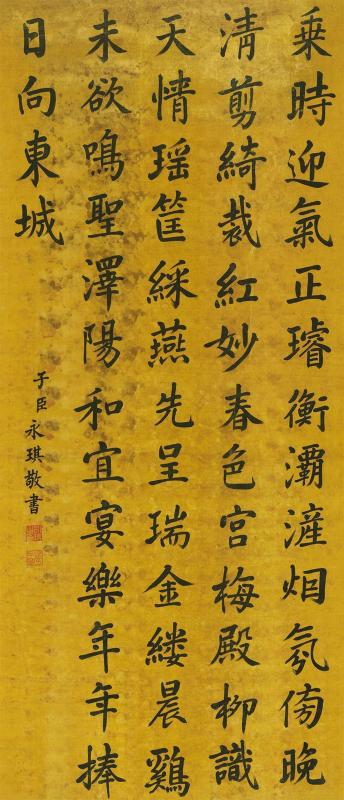 乗時迎氣正璿衡灞滻烟氛傍晚
清剪綺裁紅妙春色宮梅殿柳識
天情瑶筐綵燕先呈瑞金縷晨鷄
未欲鳴聖澤陽和宜宴樂年年捧
日向東城
子臣永琪敬書